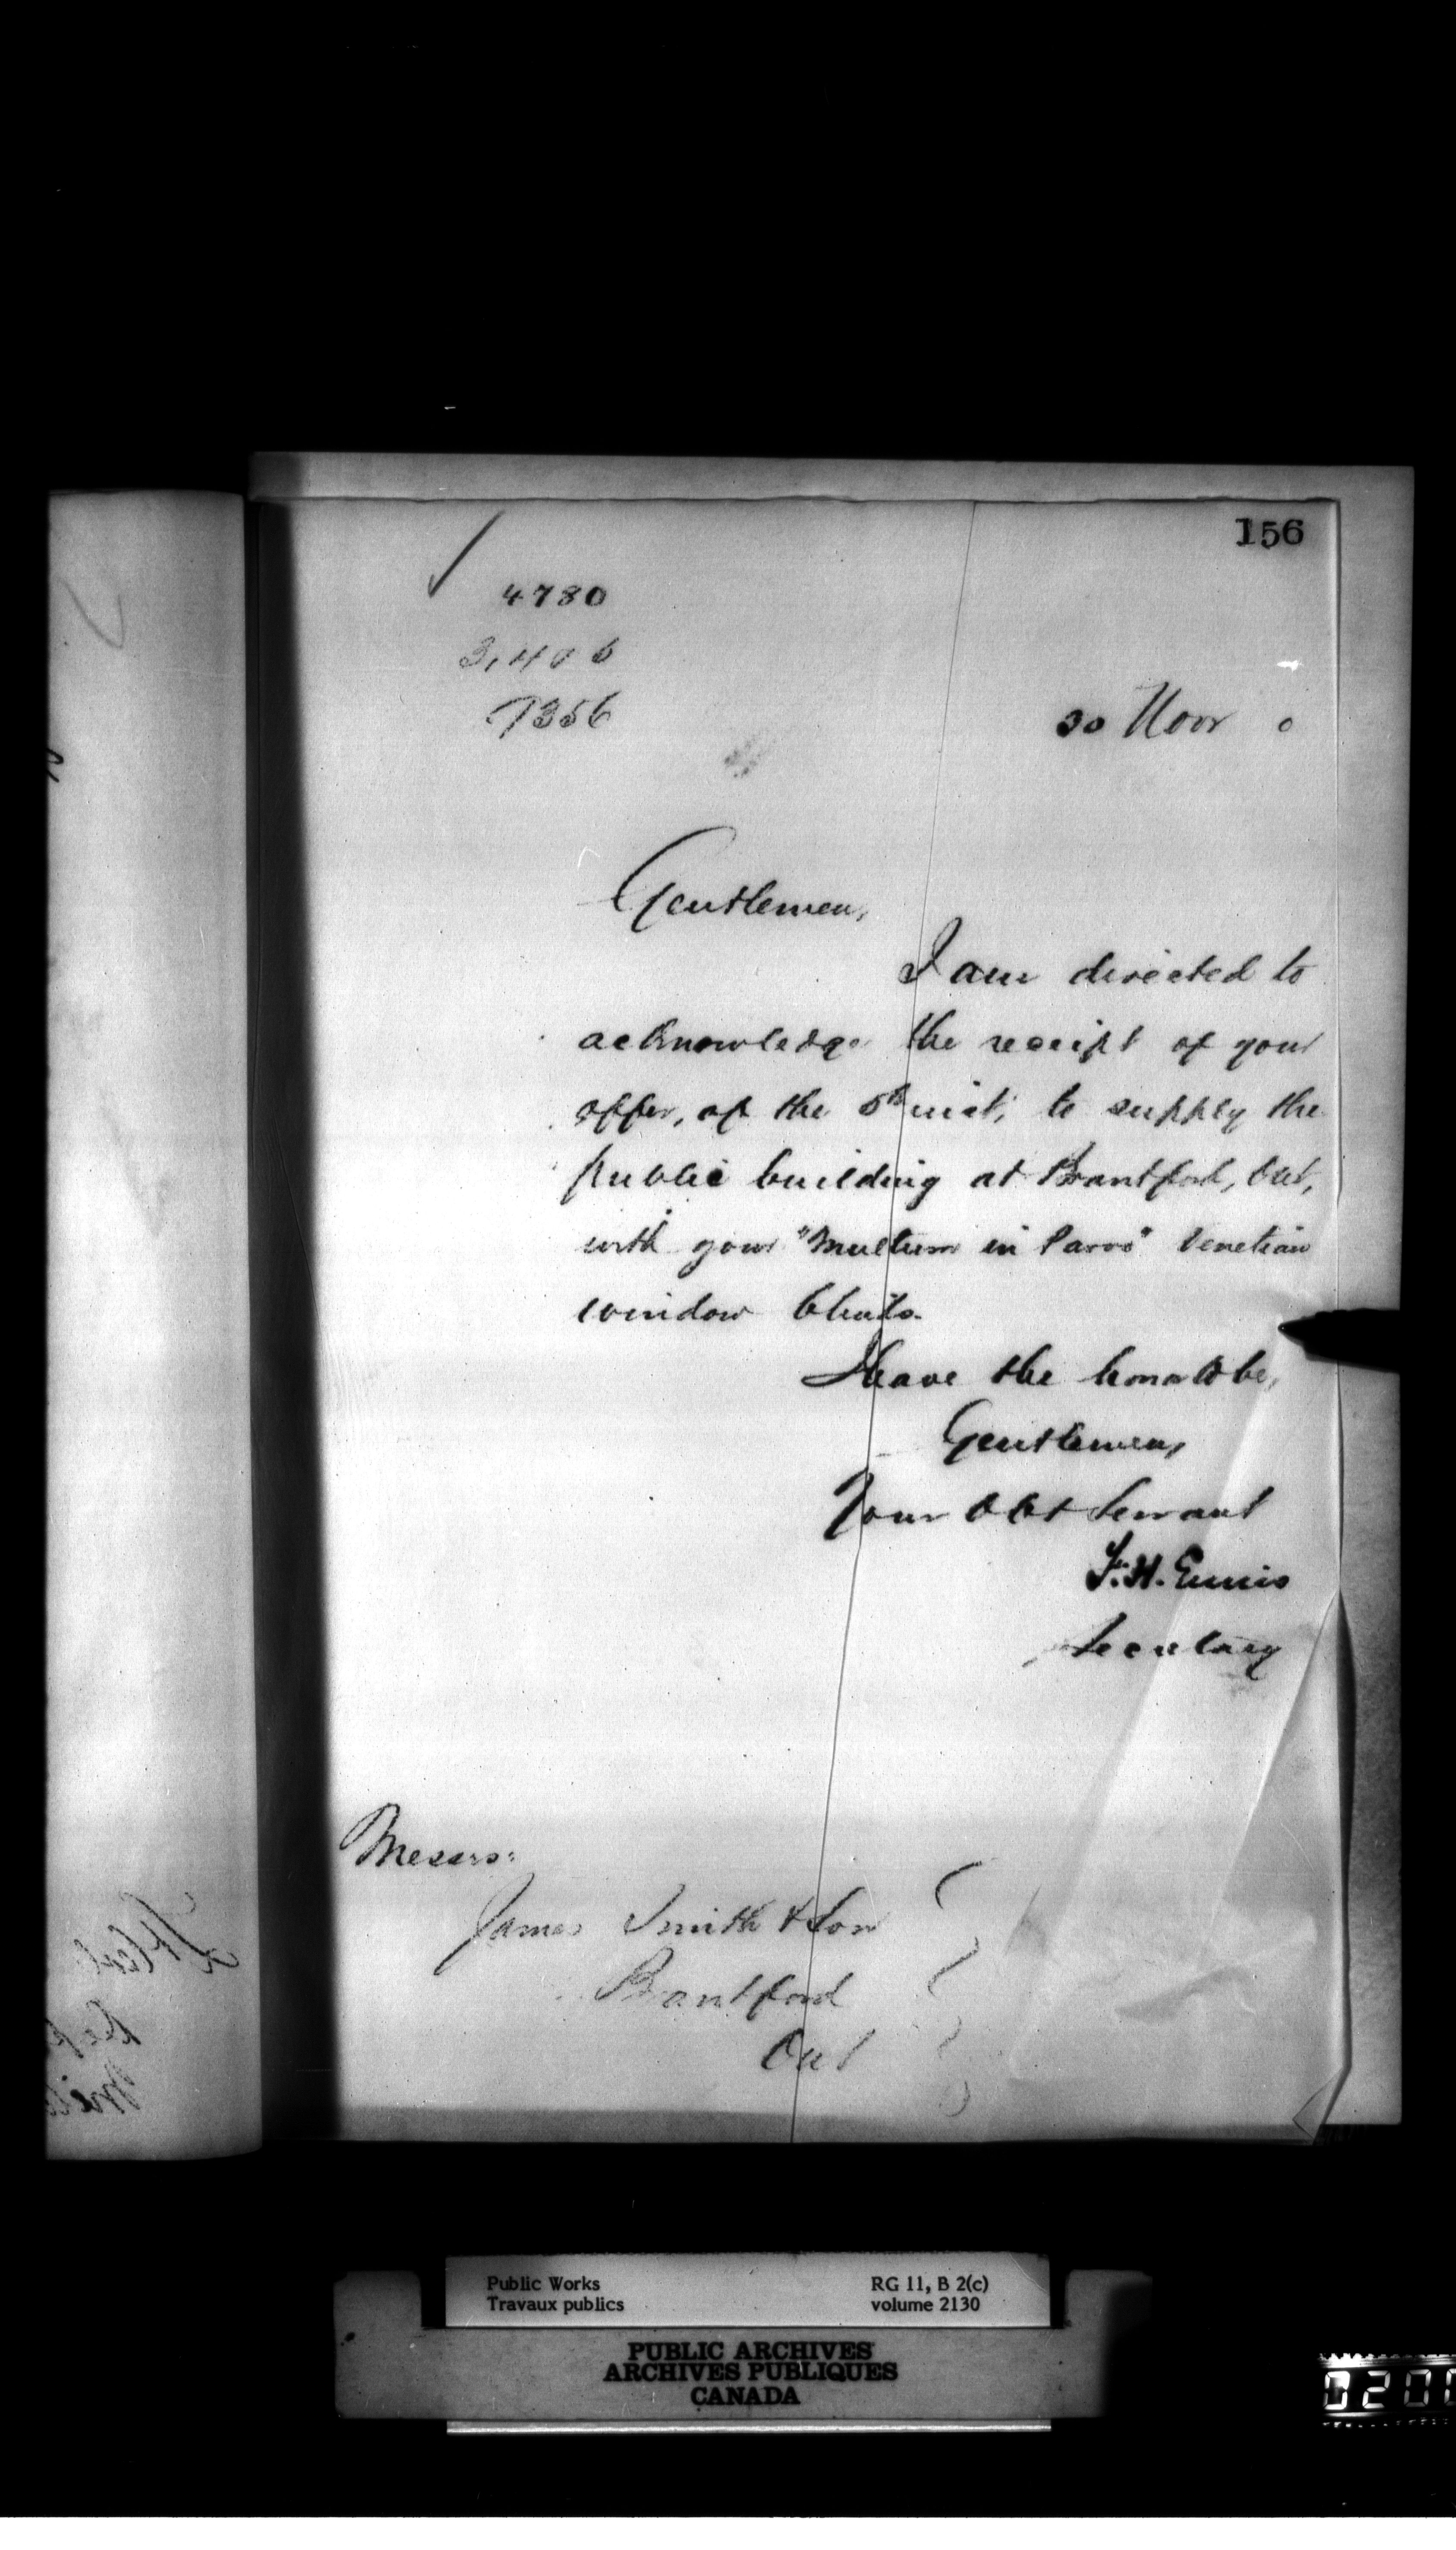 156
4780
3,406
7356
30 Novr 0
Gentlemen,
I am directed to
acknowledge the receipt of your
offer, of the 5th inst, to supply the
public building at Brantford, Ont,
with your "Multum in Parvo" Venetian
window blinds.
I have the honor to be,
Gentlemen,
Your Obt Servant
F. H. Ennis
Secretary
Messrs:
James Smith & Son
Brantford
Ont
Public Works
Travaux publics
RG 11, B 2(c)
volume 2130
PUBLIC ARCHIVES
ARCHIVES PUBLIQUES
CANADA